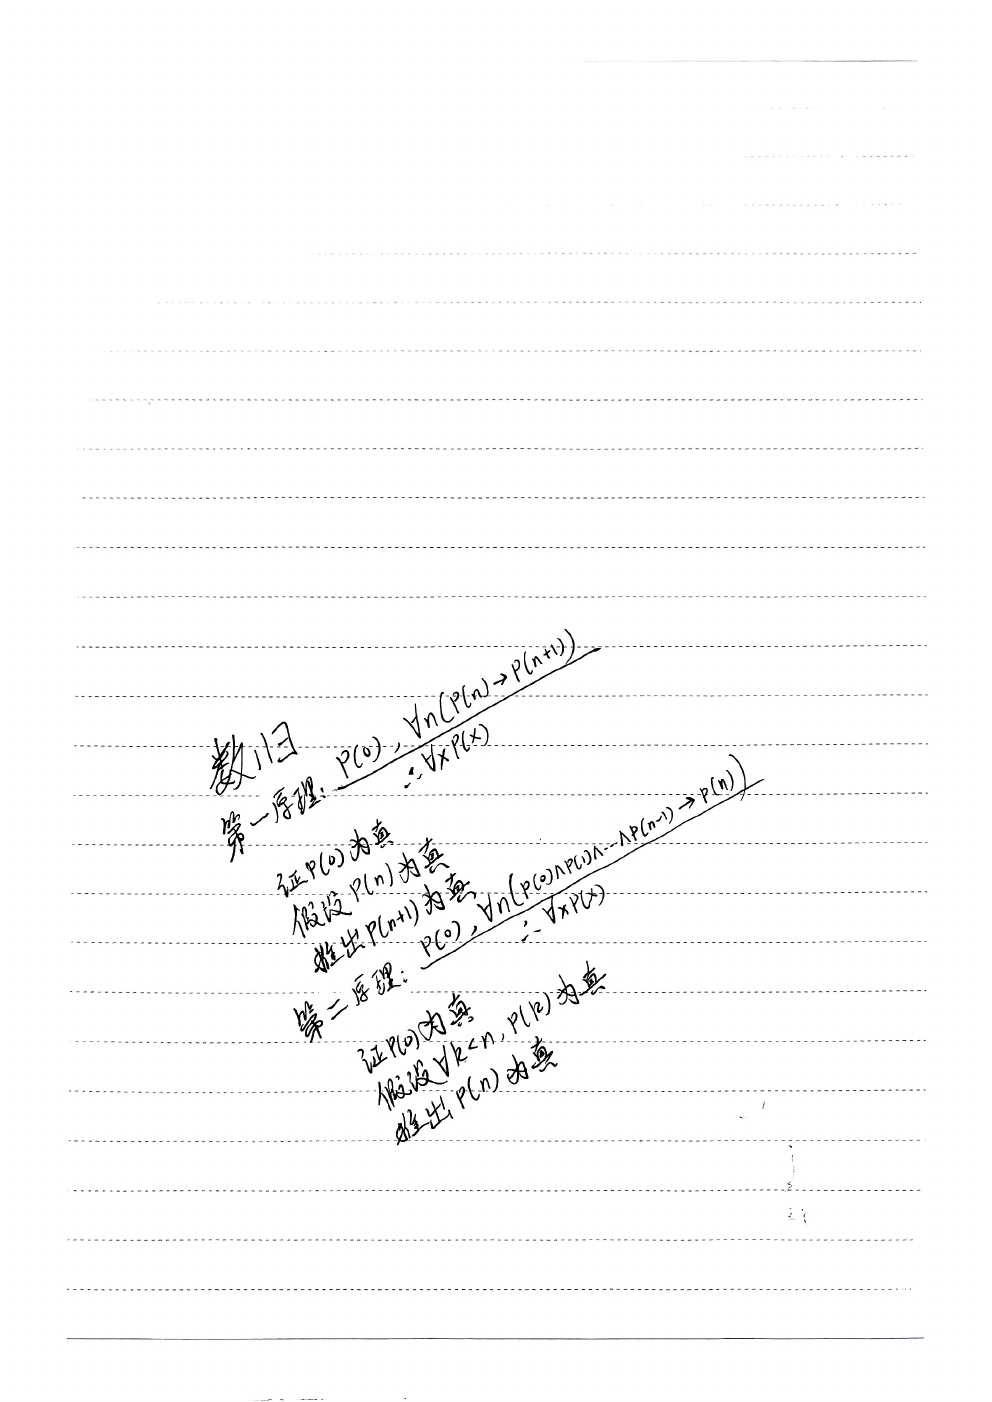 数归
第一原理: P(0), ∀n(P(n)→P(n+1))
∴ ∀xP(x)
证P(0)为真
假设P(n)为真
推出P(n+1)为真
第二原理: P(0), ∀n(P(0)∧P(1)∧…∧P(n-1)→P(n))
∴ ∀xP(x)
证P(0)为真
假设∀k<n, P(k)为真
推出P(n)为真